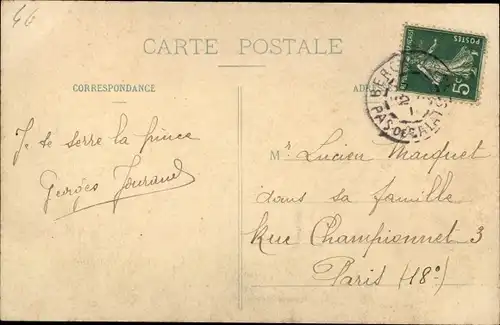 46
CARTE POSTALE
CORRESPONDANCE
Je te serre la pince
Georges
Mr Lucien Maquet
dans sa famille
Rue Championnet 3
Paris (18e)
POSTES
5c
PAS-DE-CALAIS